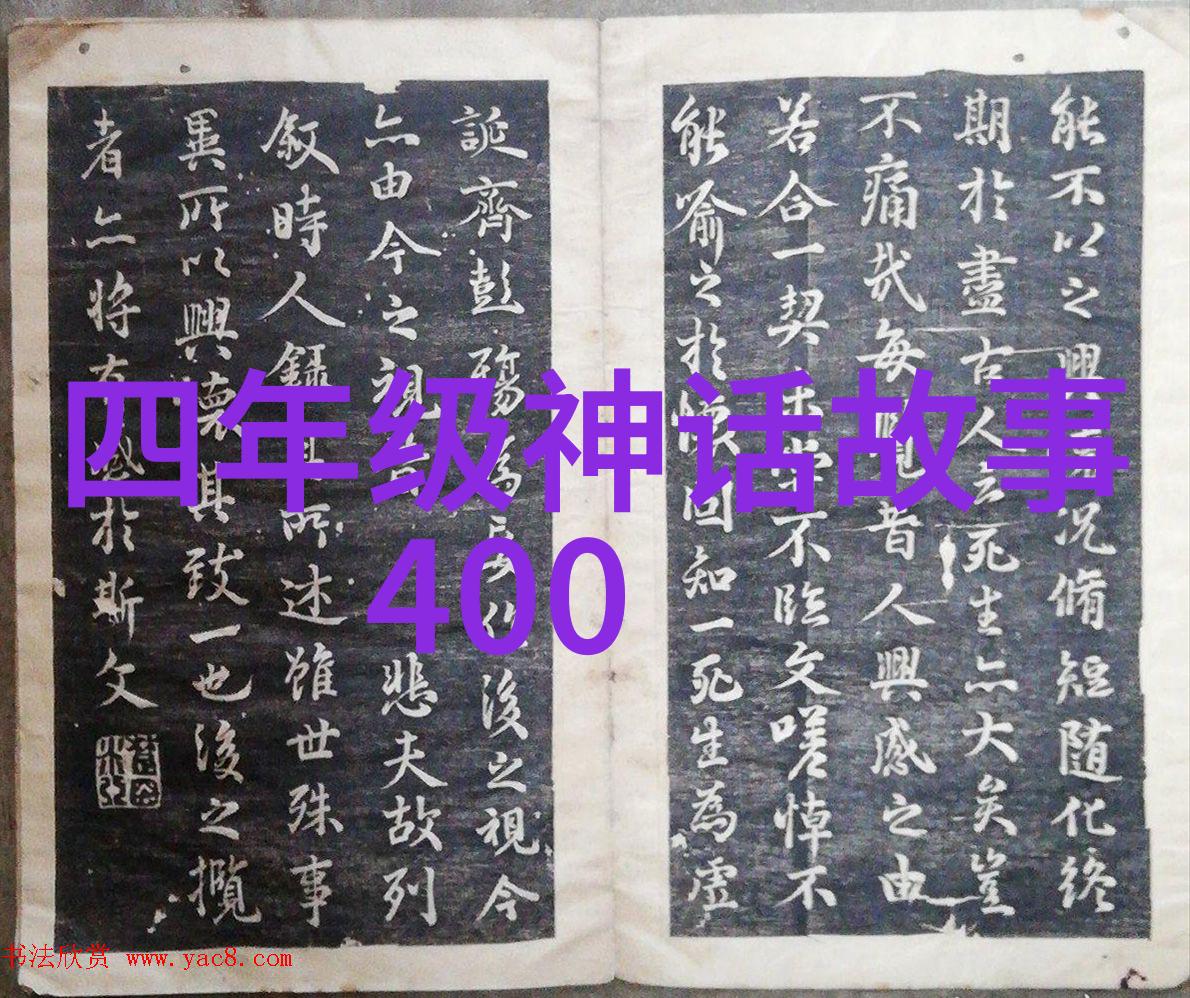 能不以之興況脩短随化終
期於盡古人云死生亦大矣豈
不痛哉每攬昔人興感之由
若合一契未嘗不臨文嗟悼不
能喻之於懷固知一死生為虛
誕齊彭殤為妄作後之視今
亦由今之視悲夫故列
敘時人録其所述雖世殊事
異所以興懷其致一也後之攬
者亦将有感於斯文
四年级神话故事
400
书法欣赏 www.yac8.com